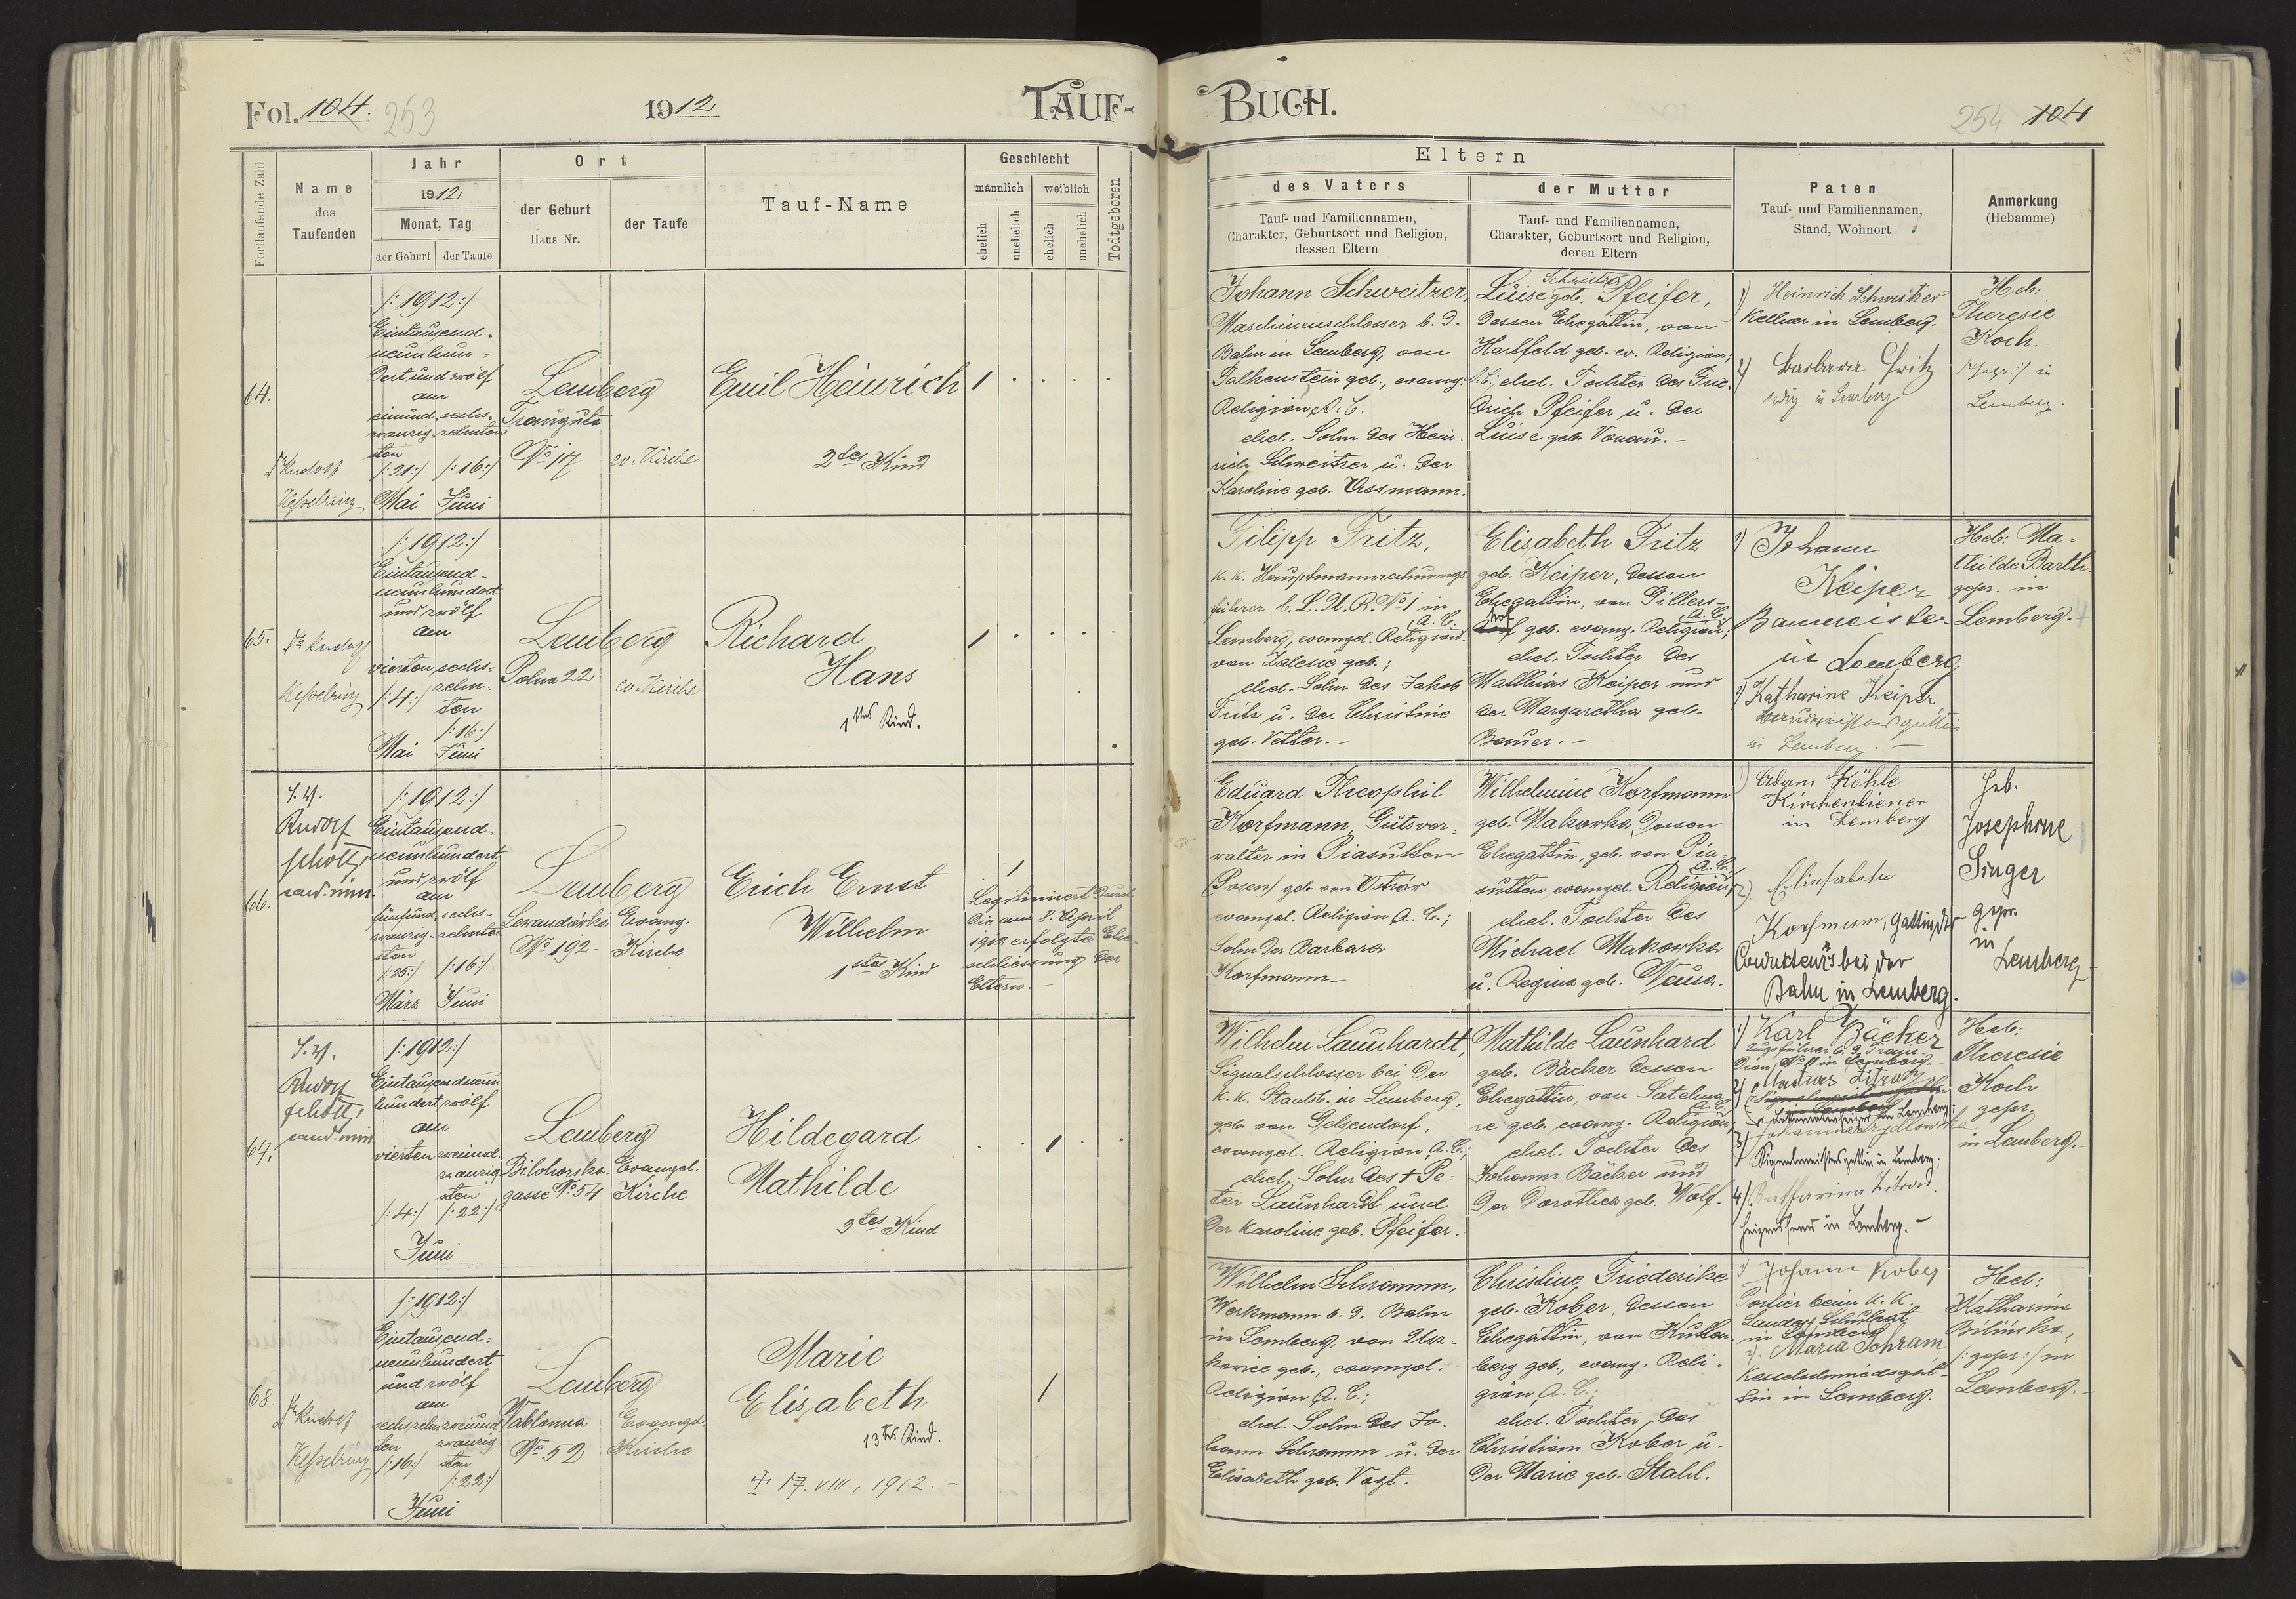 Fol. 104. 253
1912
TAUF-
Fortlaufende Zahl
Name
des
Taufenden
Jahr
1912
Monat, Tag
der Geburt
der Taufe
Ort
der Geburt
Haus Nr.
der Taufe
Tauf-Name
Geschlecht
männlich
weiblich
ehelich
unehelich
ehelich
unehelich
Todtgeboren
64.
Dr Rudolf
Kesselring
/:1912:/
Eintausend-
neunhun-
dert und zwölf
am
einund-
zwanzig-
sten
/:21:/
Mai
sechs-
zehnten
/:16:/
Juni
Lemberg
Traugutta
No 17
ev. Kirche
Emil Heinrich
2tes Kind
1
65.
Dr Rudolf
Kesselring
/:1912:/
Eintausend-
neunhundert
und zwölf
am
vierten
/:4:/
Mai
sechs-
zehn-
ten
/:16:/
Juni
Lemberg
Polna 22
ev. Kirche
Richard
Hans
1tes Kind.
1
66.
I.V.
Rudolf
Scholz,
cand. min.
/:1912:/
Eintausend-
neunhundert
und zwölf
am
fünfund-
zwanzig-
sten
/:25:/
März
sechs-
zehnten
/:16:/
Juni
Lemberg
Lewandówka
No 192-
Evang.
Kirche
Erich Ernst
Wilhelm
1stes Kind
1
Legitimiert durch
die am 8. April
1912 erfolgte Ehe-
schliessung der
Eltern.-
67.
I.V.
Rudolf
Scholz,
cand. min.
/:1912:/
Eintausendneun
hundert zwölf
am
vierten
/:4:/
zweiund-
zwanzig-
sten
/:22:/
Juni
Lemberg
Bilohorska-
gasse No 54
Evangel.
Kirche
Hildegard
Mathilde
3tes Kind
1
68.
Dr Rudolf
Kesselring
/:1912:/
Eintausend-
neunhundert
und zwölf
am
sechszehn
ten
/:16:/
zweiund
zwanzig-
sten
/:22:/
Juni
Lemberg
Jablonna
No 52
Evangel.
Kirche
Marie
Elisabeth
13tes Kind.
† 17. VIII, 1912.-
1
BUCH.
254 104
Eltern
des Vaters
Tauf- und Familiennamen,
Charakter, Geburtsort und Religion,
dessen Eltern
der Mutter
Tauf- und Familiennamen,
Charakter, Geburtsort und Religion,
deren Eltern
Paten
Tauf- und Familiennamen,
Stand, Wohnort
Anmerkung
(Hebamme)
Johann Schweitzer,
Maschinenschlosser b. d.
Bahn in Lemberg, von
Falkenstein geb., evang.
Religion A. C.
ehel. Sohn des Hein-
rich Schweitzer u. der
Karoline geb. Ursmann.
Luise geb. Pfeifer,
dessen Ehegattin, von
Hartfeld geb. ev. Religion;
A. C.; ehel. Tochter des Frie-
drich Pfeifer u. der
Luise geb. Vonau.-
1) Heinrich Schweitzer
Kellner in Lemberg.
2) Barbara Fritz
in Lemberg
Heb:
Theresie
Koch.
/:gepr:/ in
Lemberg.
Filipp Fritz,
k. k. Hauptmannrechnungs-
führer b. L. U. R. No 1 in
Lemberg, evangel. Religion A. C.
von Zalesie geb.;
ehel. Sohn des Jakob
Fritz u. der Christine
geb. Vetter.-
Elisabeth Fritz
geb. Keiper, dessen
Ehegattin, von Gillers-
hof geb. evang. Religion A. C.;
ehel. Tochter des
Matthias Keiper und
der Margaretha geb.
Bauer.-
1) Johann
Keiper
Baumeister
in Lemberg
2) Katharine Keiper,
in Lemberg.-
Heb: Ma-
thilde Barth.
gepr. in
Lemberg.
Eduard Theophil
Korfmann, Gutsver-
walter in Piasutten
(Posen) geb. von Ostrów
evangel. Religion A. C.;
Sohn der Barbara
Korfmann-
Wilhelmine Korfmann
geb. Makowka, dessen
Ehegattin, geb. von Pia-
sutten evangel. Religion A. C.;
ehel. Tochter des
Michael Makowka
u. Regina geb. Neusa.
1) Adam Köhle
Kirchendiener
in Lemberg
2) Elisabeth
Korfmann, Gattin des
Condukteurs bei der
Bahn in Lemberg.
Heb.
Josephine
Singer
gepr.
in
Lemberg-
Wilhelm Launhardt,
Signalschlosser bei der
k. k. Staatsb. in Lemberg,
geb. von Gelsendorf,
evangel. Religion, A. C.;
ehel. Sohn des † Pe-
ter Launhardt und
der Karoline geb. Pfeifer.
Mathilde Launhard
geb. Bäcker dessen
Ehegattin, von Satelma
ie geb. evang. Religion A. C.;
ehel. Tochter des
Johann Bäcker und
der Dorothea geb. Wolf.
1) Karl Bäcker
Zugsführer b. d. Train
Dion No 11 in Lemberg.-
2) Mathias Zitron
in Lemberg;
3) Johanna
in Lemberg;
4) Katharina Zitron.
in Lemberg.-
Heb:
Theresie
Koch
gepr.
in Lemberg.-
Wilhelm Schramm,
Werkmann b. d. Bahn
in Lemberg, von Usz-
kowice geb., evangel.
Religion A. C.;
ehel. Sohn des Jo-
hann Schramm u. der
Elisabeth geb. Vogt.
Christine Friederike
geb. Kober, dessen
Ehegattin, von Kutten
berg geb., evang. Reli-
gion, A. C.;
ehel. Tochter des
Christian Kober u.
der Marie geb. Stahl.
1) Johann Kober
Portier beim k. k.
Landes Schulrat
in Lemberg
2). Maria Schram
Kesselschmiedsgat-
tin in Lemberg.
Heb:
Katharina
Bilinska,
/:gepr:/ in
Lemberg.-